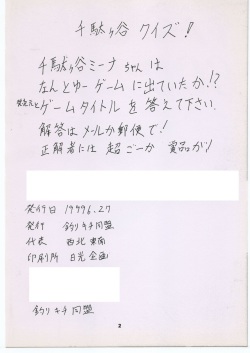 千駄ヶ谷クイズ!
千駄ヶ谷ミーナちゃんは
なんとゆーゲームに出ていたか!?
発売元とゲームタイトルを答えて下さい。
解答はメールか郵便で!
正解者には超ごーか賞品が!
発行日 1999.6.27
発行 釣りキチ同盟
代表 西北東南
印刷所 日光企画
釣りキチ同盟
2